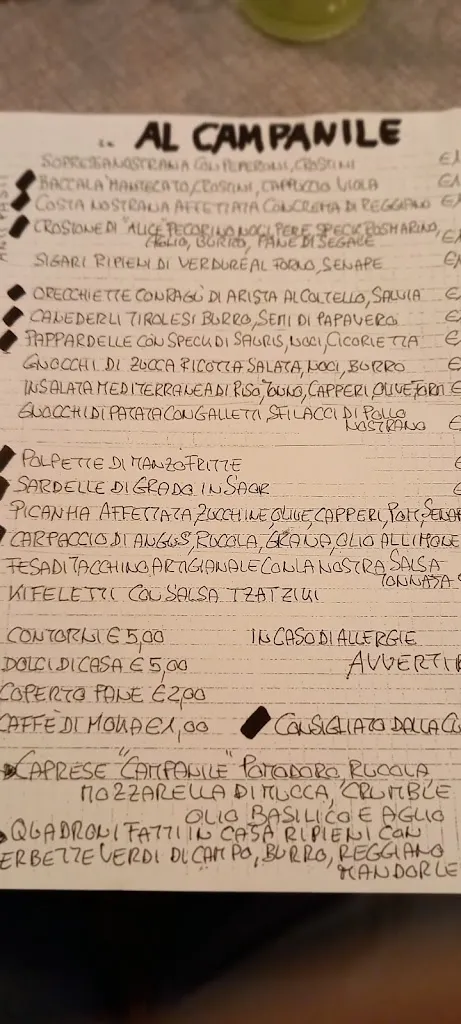 AL CAMPANILE
SOPRESSA NOSTRANA CON PEPERONI, CROSTINI
BACCALA' MANTECATO, CROSTINI, CAPPUCCIO VIOLA
COSTA NOSTRANA AFFETTATA CON CREMA DI REGGIANO
CROSIONE DI "ALICE" PECORINO, NOCI, PERE, SPECK, ROSMARINO,
AGLIO, BURRO, PANE DI SEGALE
SIGARI RIPIENI DI VERDURE AL FORNO, SENAPE
ORECCHIETTE CON RAGU' DI ARISTA AL COLTELLO, SALVIA
CANEDERLI TIROLESI BURRO, SEMI DI PAPAVERO
PAPPARDELLE CON SPECK DI SAURIS, NOCI, CICORIETTA
GNOCCHI DI ZUCCA RICOTTA SALATA, NOCI, BURRO
INSALATA MEDITERRANEA DI RISO, TONNO, CAPPERI, OLIVE, POM
GNOCCHI DI PATATA CON GALLETTI, SFILACCI DI POLLO
NOSTRANO €
POLPETTE DI MANZO FRITTE
SARDELLE DI GRADO IN SAOR
PICANHA AFFETTATA, ZUCCHINE, OLIVE, CAPPERI, POM, SENAP
CARPACCIO DI ANGUS, RUCOLA, GRANA, OLIO AL LIMONE
FESA DI TACCHINO ARTIGIANALE CON LA NOSTRA SALSA
TONNATA
KIFELETTI CON SALSA TZATZIKI
CONTORNI € 5,00 IN CASO DI ALLERGIE
DOLCI DI CASA € 5,00 AVVERTIR
COPERTO PANE € 2,00
CAFFÈ DI MOKA €1,00 CONSIGLIATO DALLA CU
CAPRESE "CAMPANILE" POMODORO, RUCOLA
MOZZARELLA DI MUCCA, CRUMBLE
OLIO BASILICO E AGLIO
QUADRONI FATTI IN CASA RIPIENI CON
ERBETTE VERDI DI CAMPO, BURRO, REGGIANO
MANDORLE